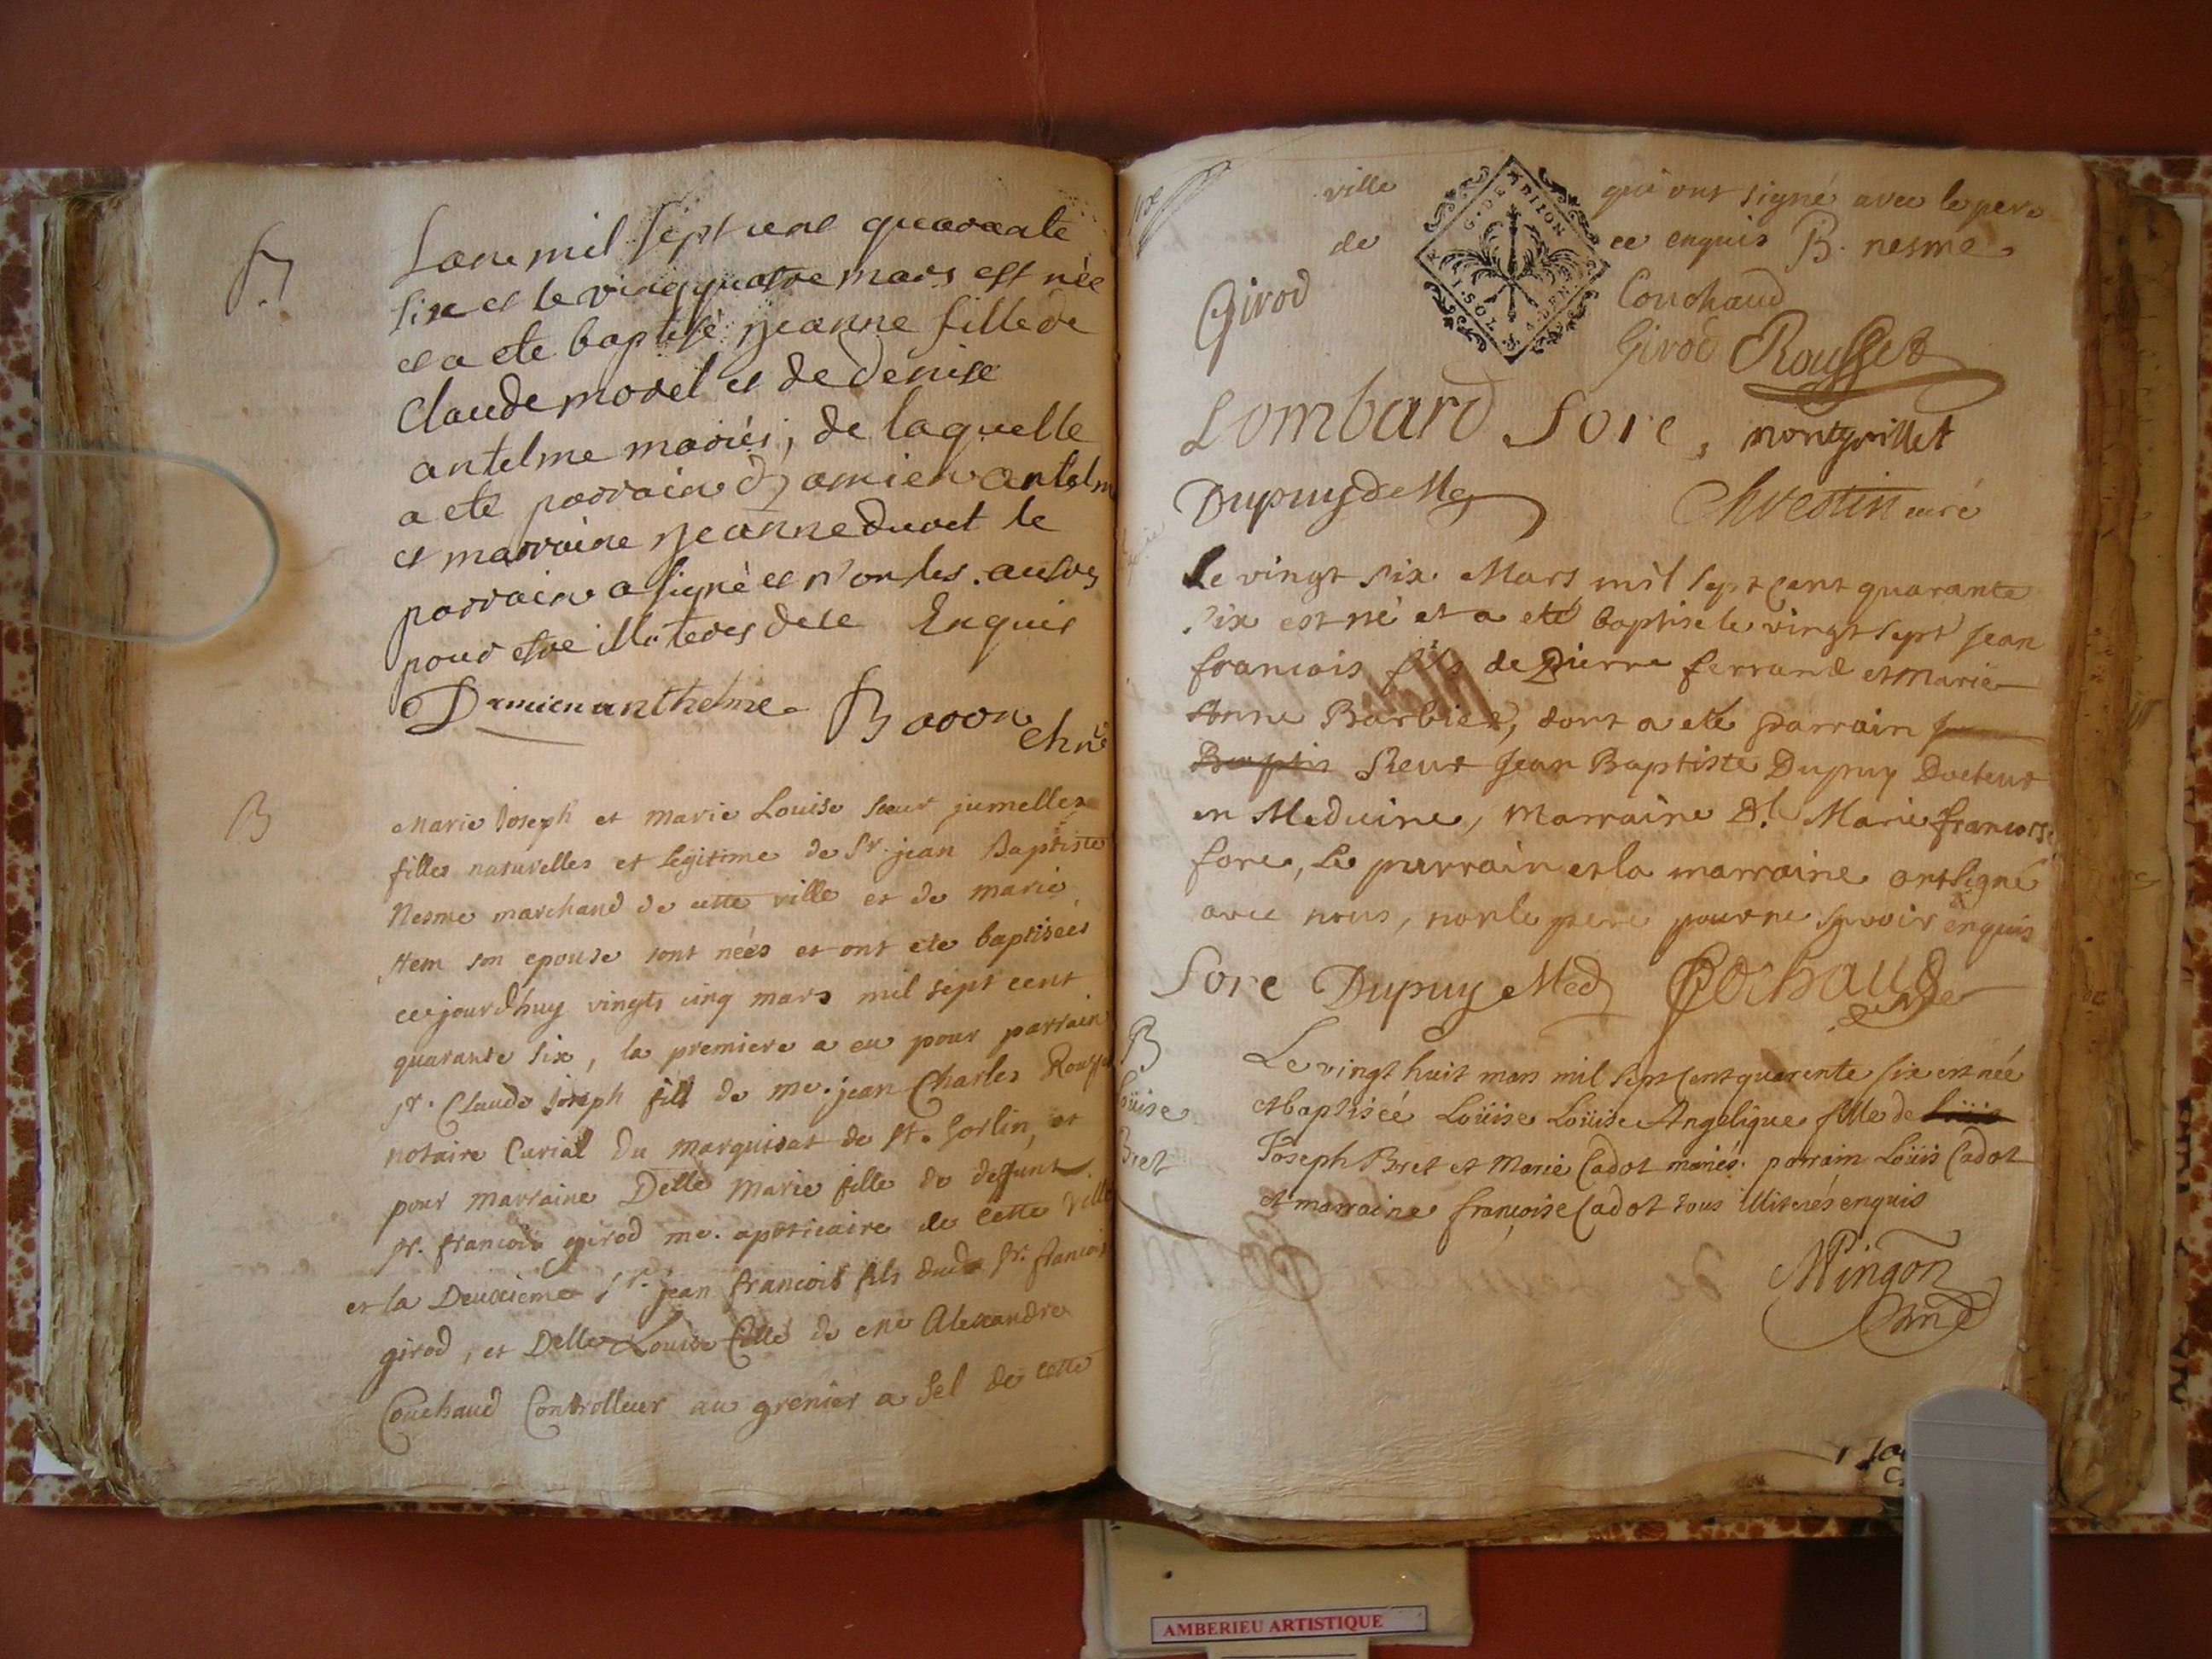 B
Lan mil sept cent quarante
six et le vingquatre mars est née
et a ete baptisé jeanne fille de
Claude morel et de denise
antelme mariés, de laquelle
a ete parrain Damien antelm
et marraine jeanne duret le
parrain a signé et non les autres
pour estre illiteres de ce Enquis
Damien anthelme Baron
chne
B
Marie Joseph et Marie Louise sœur jumelles
filles naturelles et legitime de Sr. jean Baptiste
Nesme marchand de cette ville et de marie
son epouse sont neés et ont ete baptiseés
cejourdhuy vingts cinq mars mil sept cent
quarante six, la premiere a eu pour parrain
sr. Claude Joseph fils de me. jean Charles
notaire Curial du marquisat de St. Sorlin, et
pour marraine Delle Marie fille de deffunt
sr. francois girod me. apoticaire de cette ville
et la Deuxieme Sr. jean francois fils dud. Sr. francois
girod, et Delle Louise fille de me Alexandre
Couchaud Controlleur au grenier a Sel de cette
ville qui ont signé avec le pere
de ce enquis B. nesme
G. DE DIJON
Girod Couchaud
Girod Rousset
Lombard Sore, montgrillet
Dupuy de Me Chrestin curé
Le vingt six Mars mil sept cent quarante
six est né et a eté baptisé le vingt sept Jean
francois fils de Pierre ferrand et Marie
Anne Barbier, dont a eté parrain
Baptis Sieur Jean Baptiste Dupuy Docteur
en Medecine, Marraine D.l Marie francoise
sore, Le parrain et la marraine ont signé
avec nous, non le pere pour ne scavoir enquis
Sore Dupuy Med Cochaud
B
Loüise
Bret
Le vingt huit mars mil sept cent quarente six est née
et baptisée Loüise Loüise Angelique fille de Loüis
Joseph Bret et Marie Cadot mariés. parrain Loüis Cadot
et marraine françoise Cadot tous illiterés enquis
Mingon
AMBERIEU ARTISTIQUE